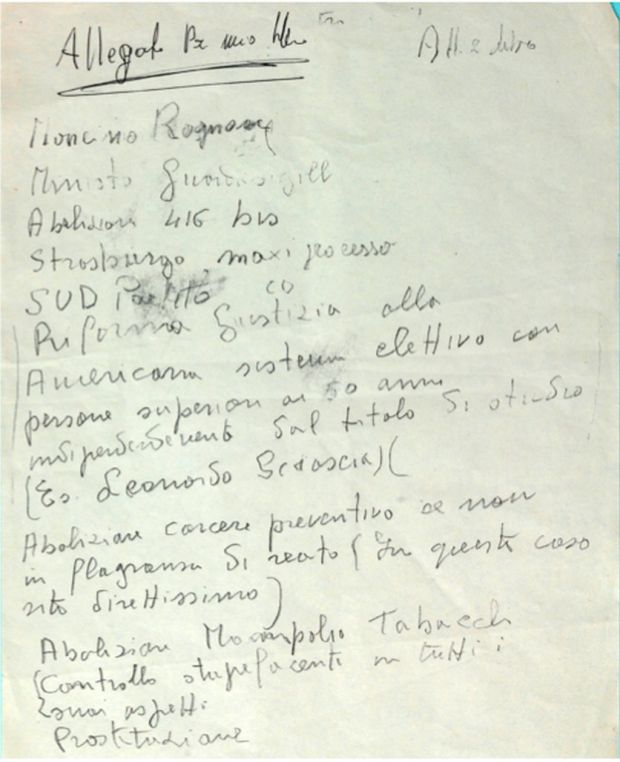 Allegato Per mio
All. 2 libro
Mancino Rognoni
Ministro Guardasigilli
Abolizione 416 bis
Strasburgo maxi processo
SUD Partito
Riforma Giustizia alla
Americana sistema elettivo con
persone superiori ai 50 anni
indipendentemente dal titolo di studio
(Es. Leonardo Sciascia)(
Abolizione carcere preventivo se non
in flagranza di reato ( In questo caso
rito direttissimo )
Abolizione Monopolio Tabacchi
(Controllo stupefacenti in tutti i
suoi aspetti
Prostituzione